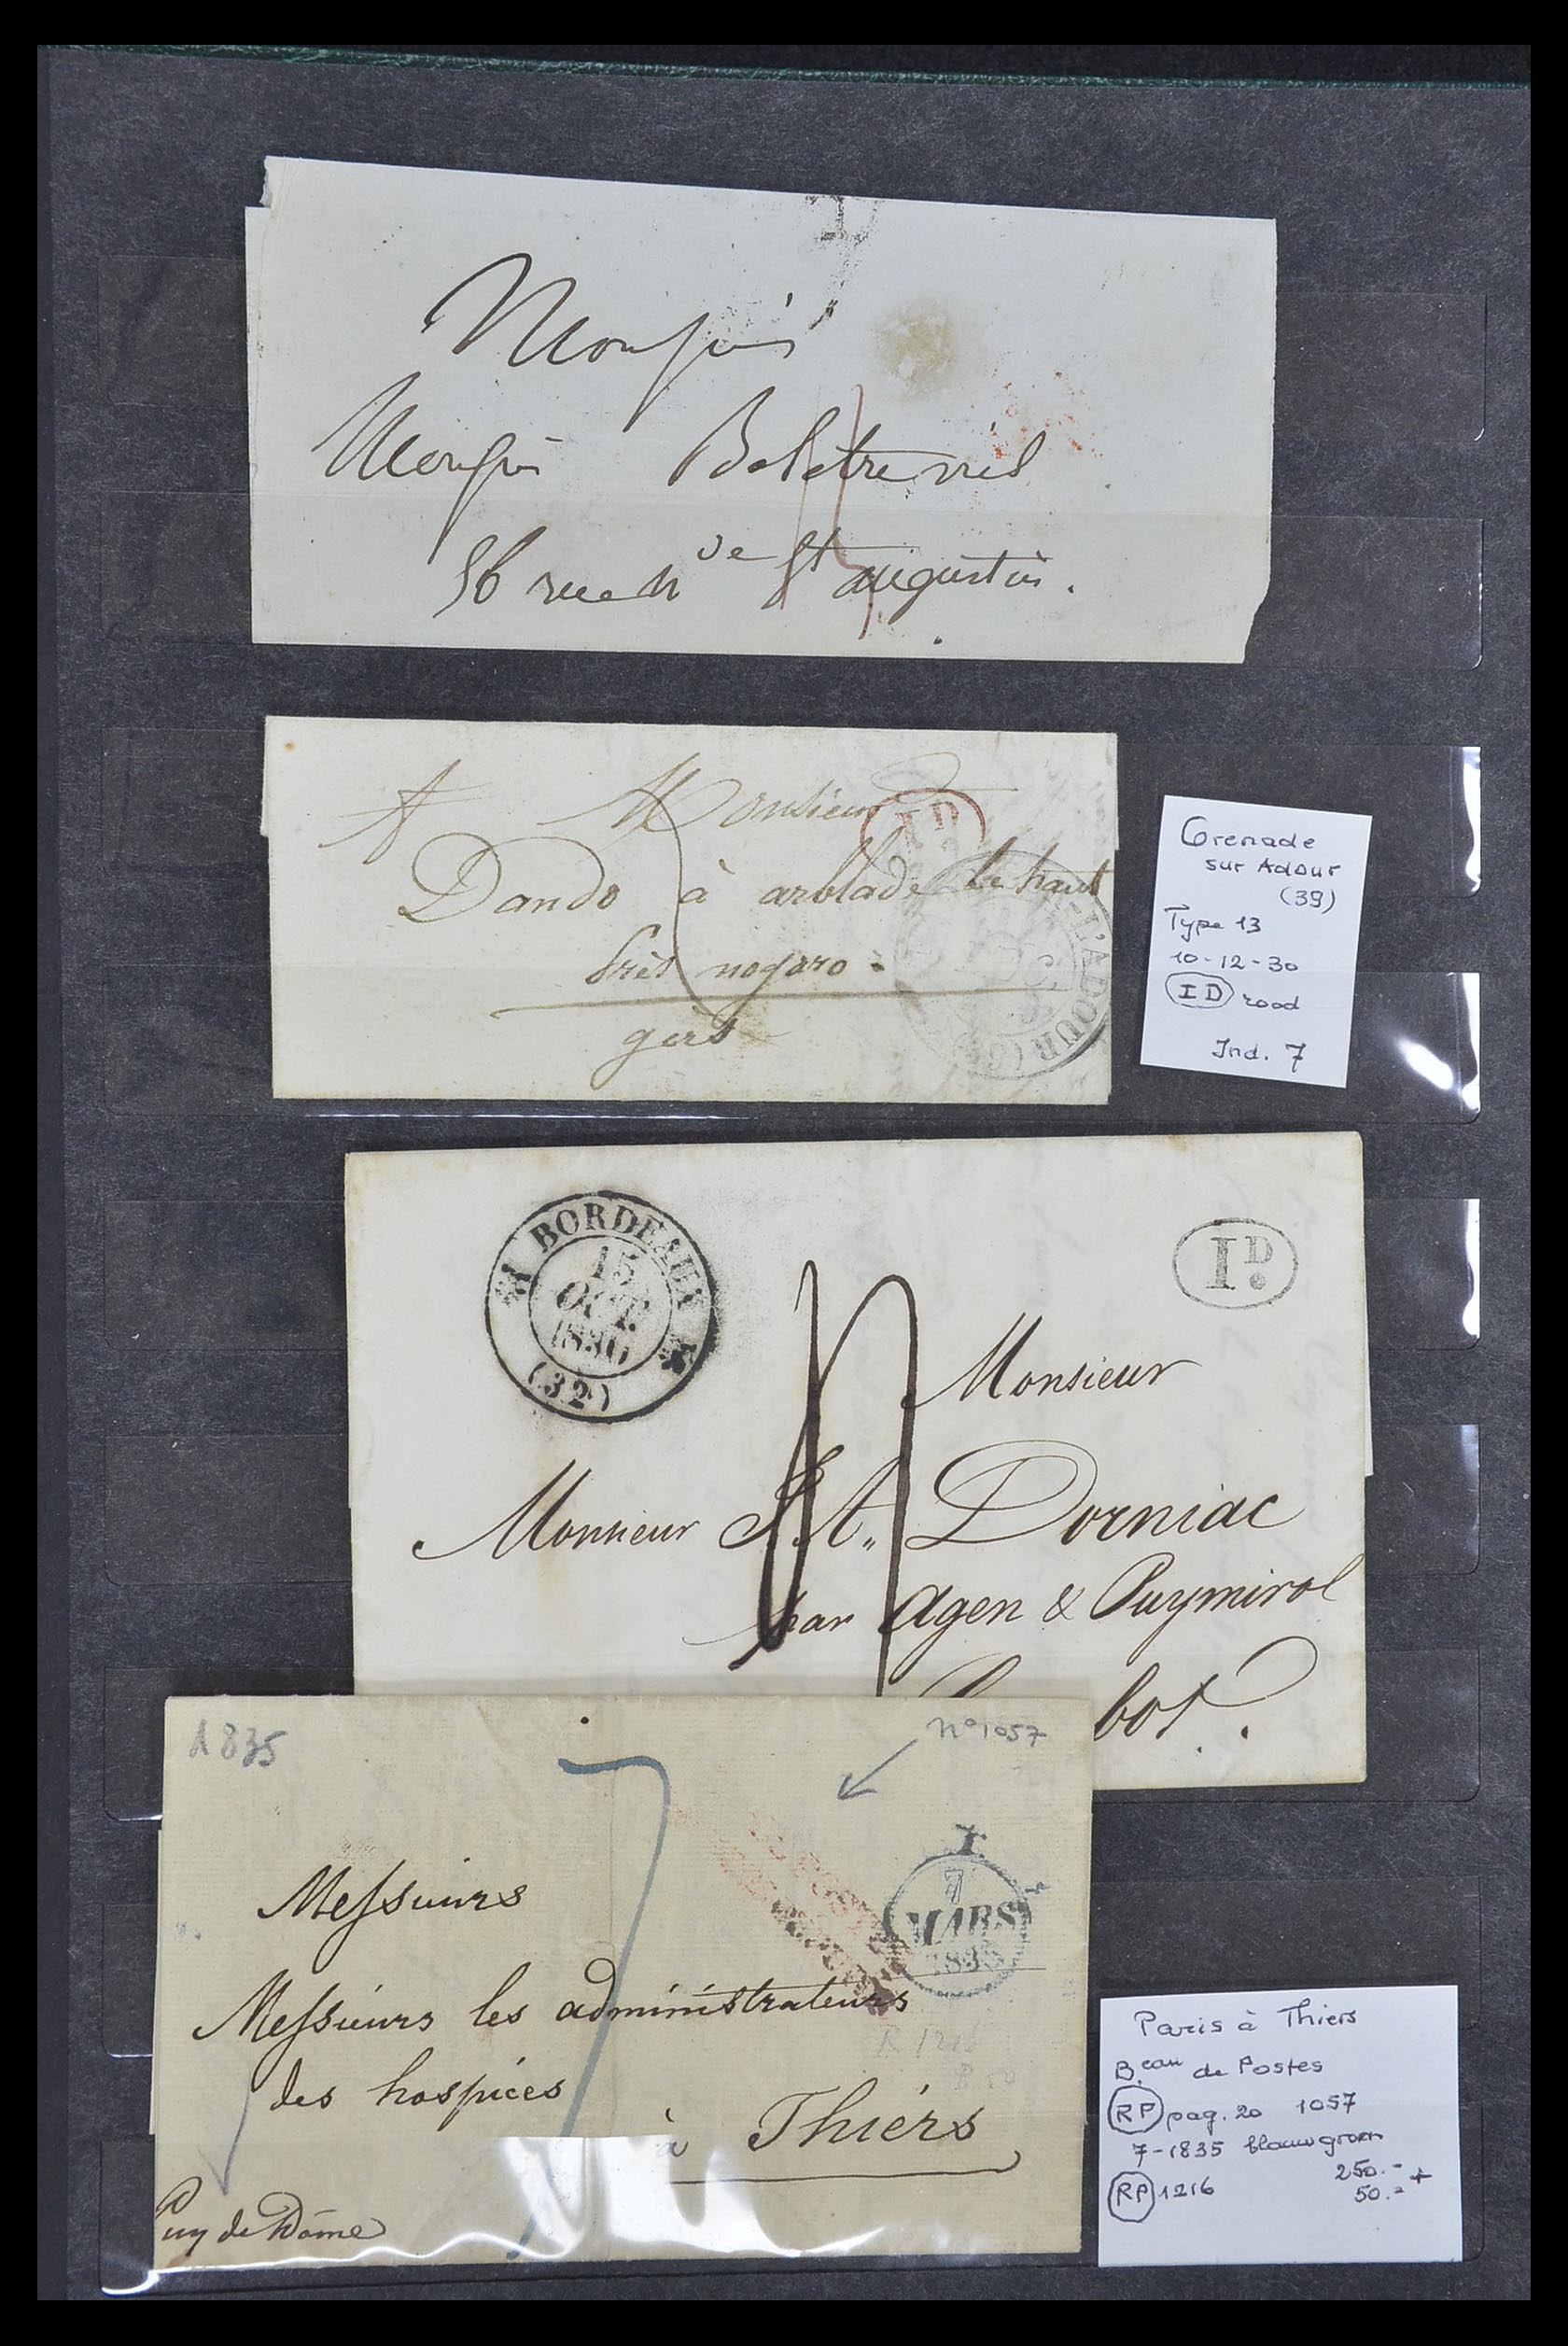 Monsieur
Monsieur
56 rue n^ve St augustin.
A Monsieur
ID
Dando à arblade le haut
près nogaro.
gers
L'ADOUR
Grenade
sur Adour
(39)
Type 13
10-12-30
ID rood
Ind. 7
BORDEAUX
15
OCT.
1830
(32)
I^D.
Monsieur
Monsieur Dorniac
par Agen & Puymirol
1835
n° 1057
7
7
MARS
1835
Messieurs
Messieurs les administrateurs
des hospices
à Thiers
Puy de Dôme
R 1216
B 50
Paris à Thiers
B.^eau de Postes
RP pag. 20 1057
7-1835 blauwgroen
RP 1216 250.-
50.- +